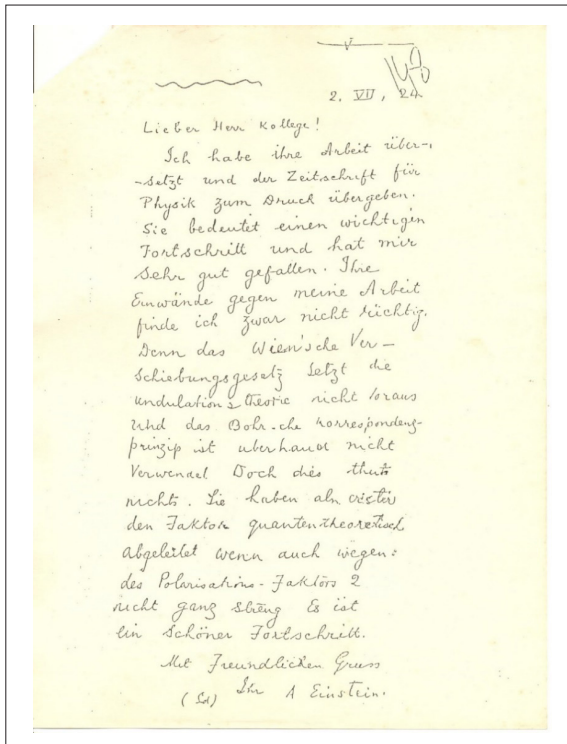 2. VII, 24
Lieber Herr Kollege!
Ich habe ihre Arbeit über-
-setzt und der Zeitschrift für
Physik zum Druck übergeben.
Sie bedeutet einen wichtigen
Fortschritt und hat mir
Sehr gut gefallen. Ihre
Einwände gegen meine Arbeit
finde ich zwar nicht richtig.
Denn das Wien'sche Ver-
Schiebungsgesetz setzt die
undulations theorie nicht voraus
und das Bohr-che korrespondenz-
prinzip ist uberhaud nicht
Verwendel Doch dies thut
nichts. Sie haben als erster
den Faktor quantentheoretisch
abgeleitet wenn auch wegen:
des Polarisations-Faktors 2
nicht ganz streng Es ist
ein Schöner Fortschritt.
Mit Freundlichen Gruss
Ihr A Einstein.
(Sd)